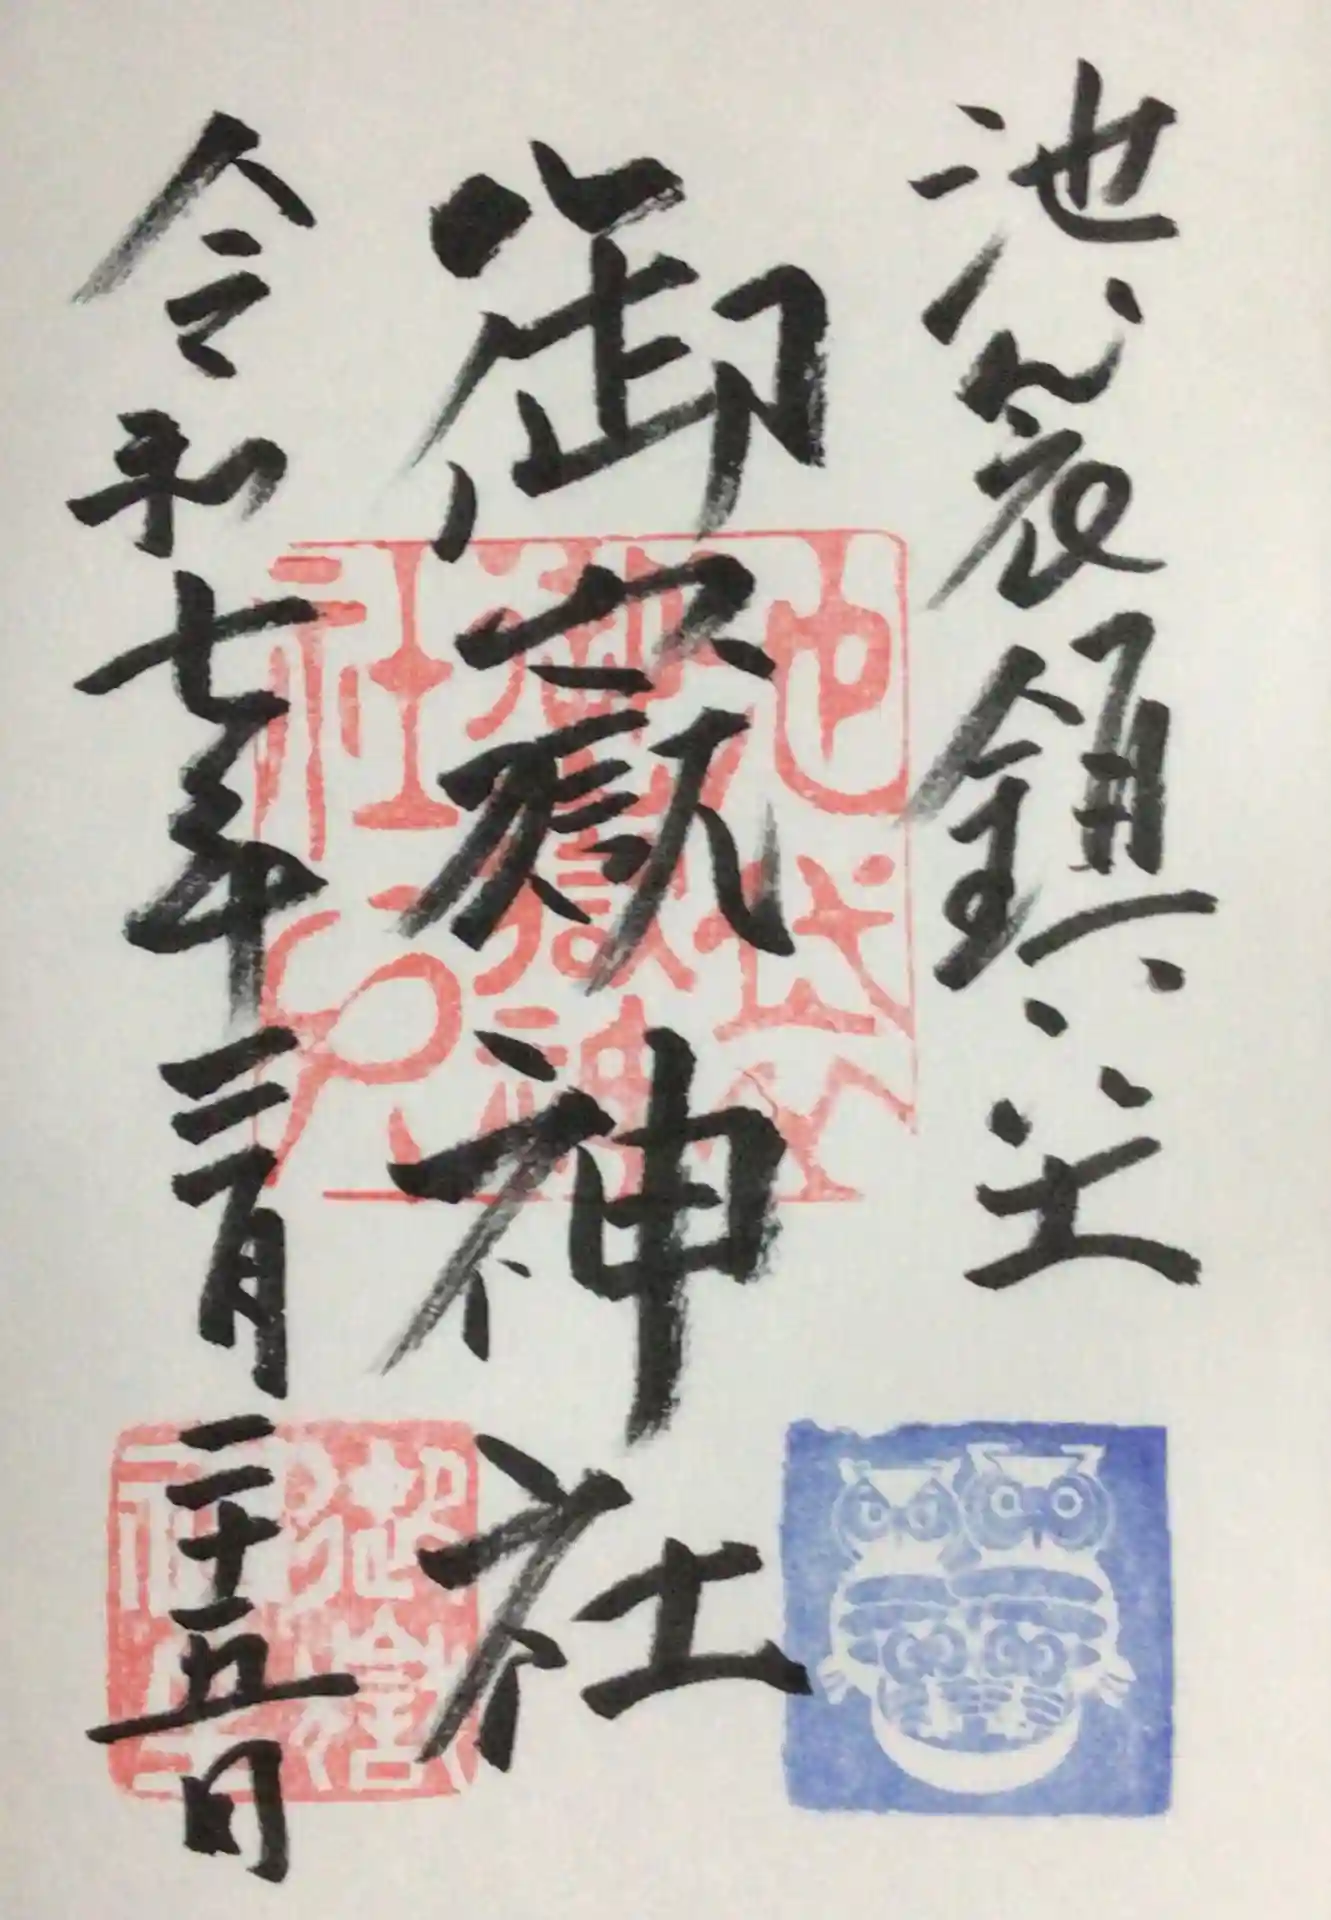 池袋鎮座
御嶽神社
令和七年三月二十五日
池袋
御嶽神
社之印